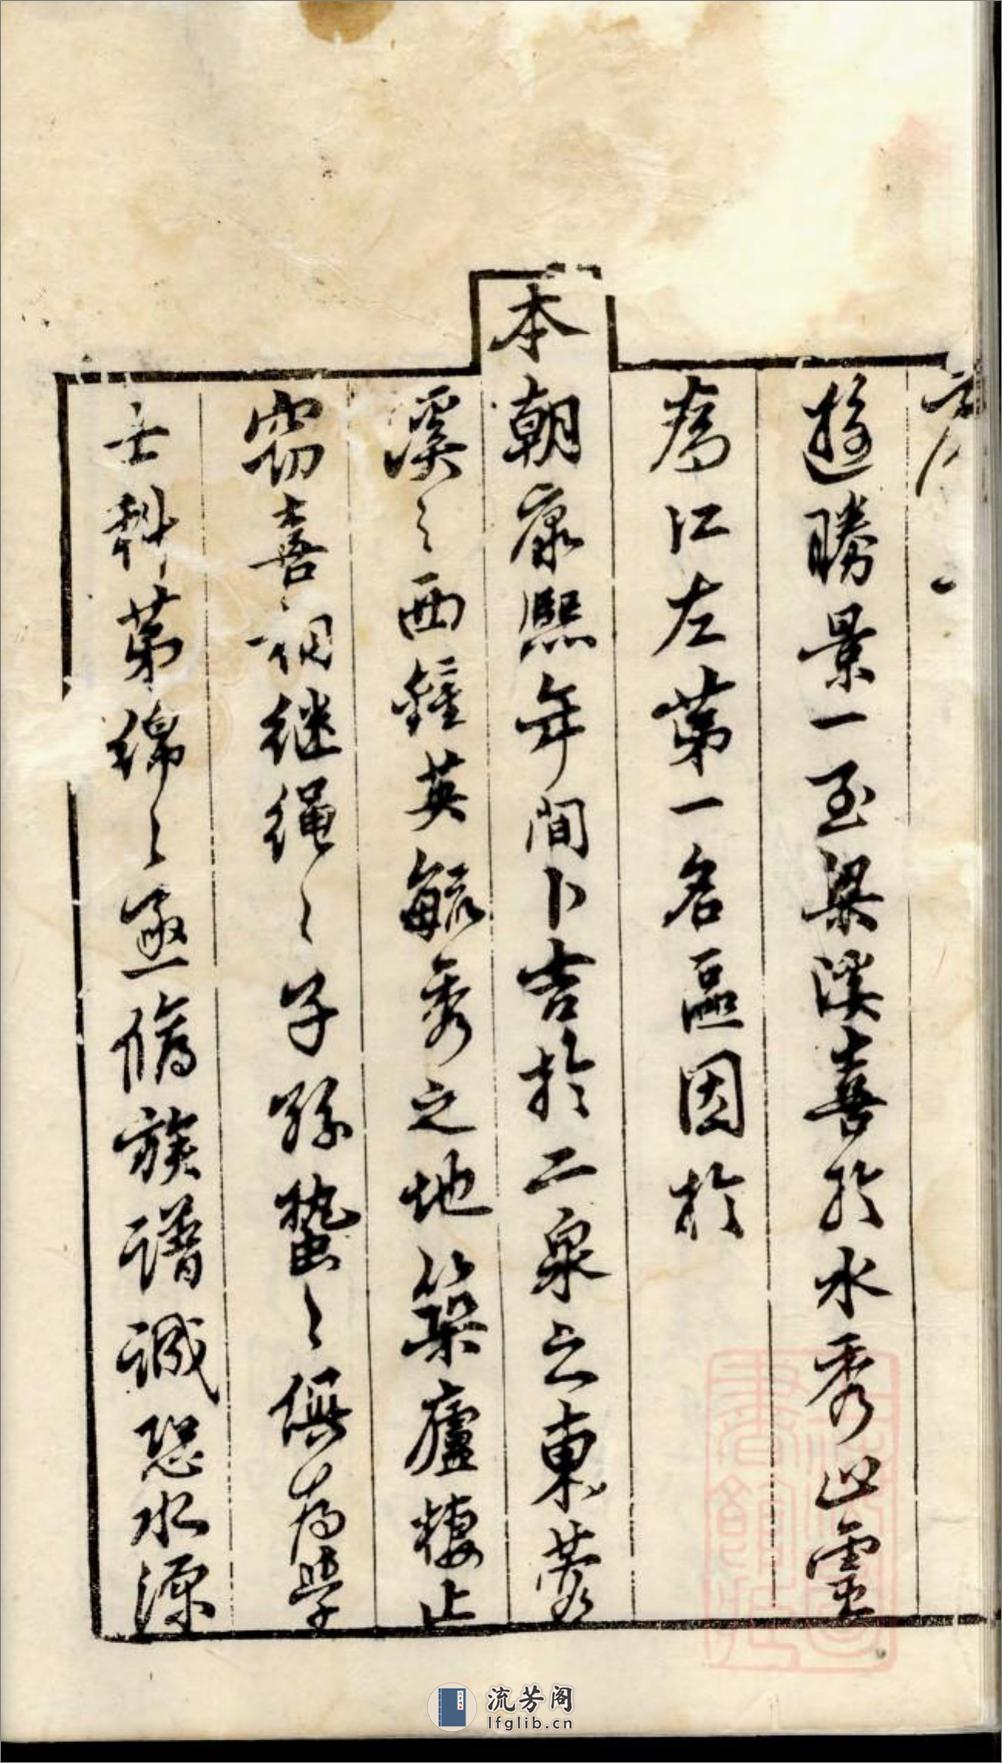 遊勝景一至梁溪喜於水秀山靈
為江左第一名區因於
本朝康熙年間卜吉於二泉之東蓉
溪之西鍾英毓秀之地築廬棲止
窃喜詞继绳〻子孫蟄〻俱為學
士科第綿〻亟脩族譜誠恐水源
流芳阁
lfglib.cn